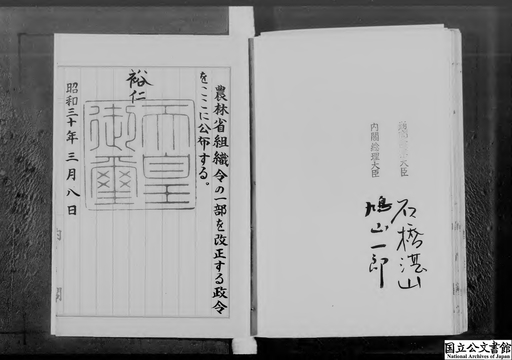 農林省組織令の一部を改正する政令
をここに公布する。
裕仁
天皇
御璽
昭和三十年三月八日
内閣総理大臣
石橋湛山
鳩山一郎
国立公文書館
National Archives of Japan